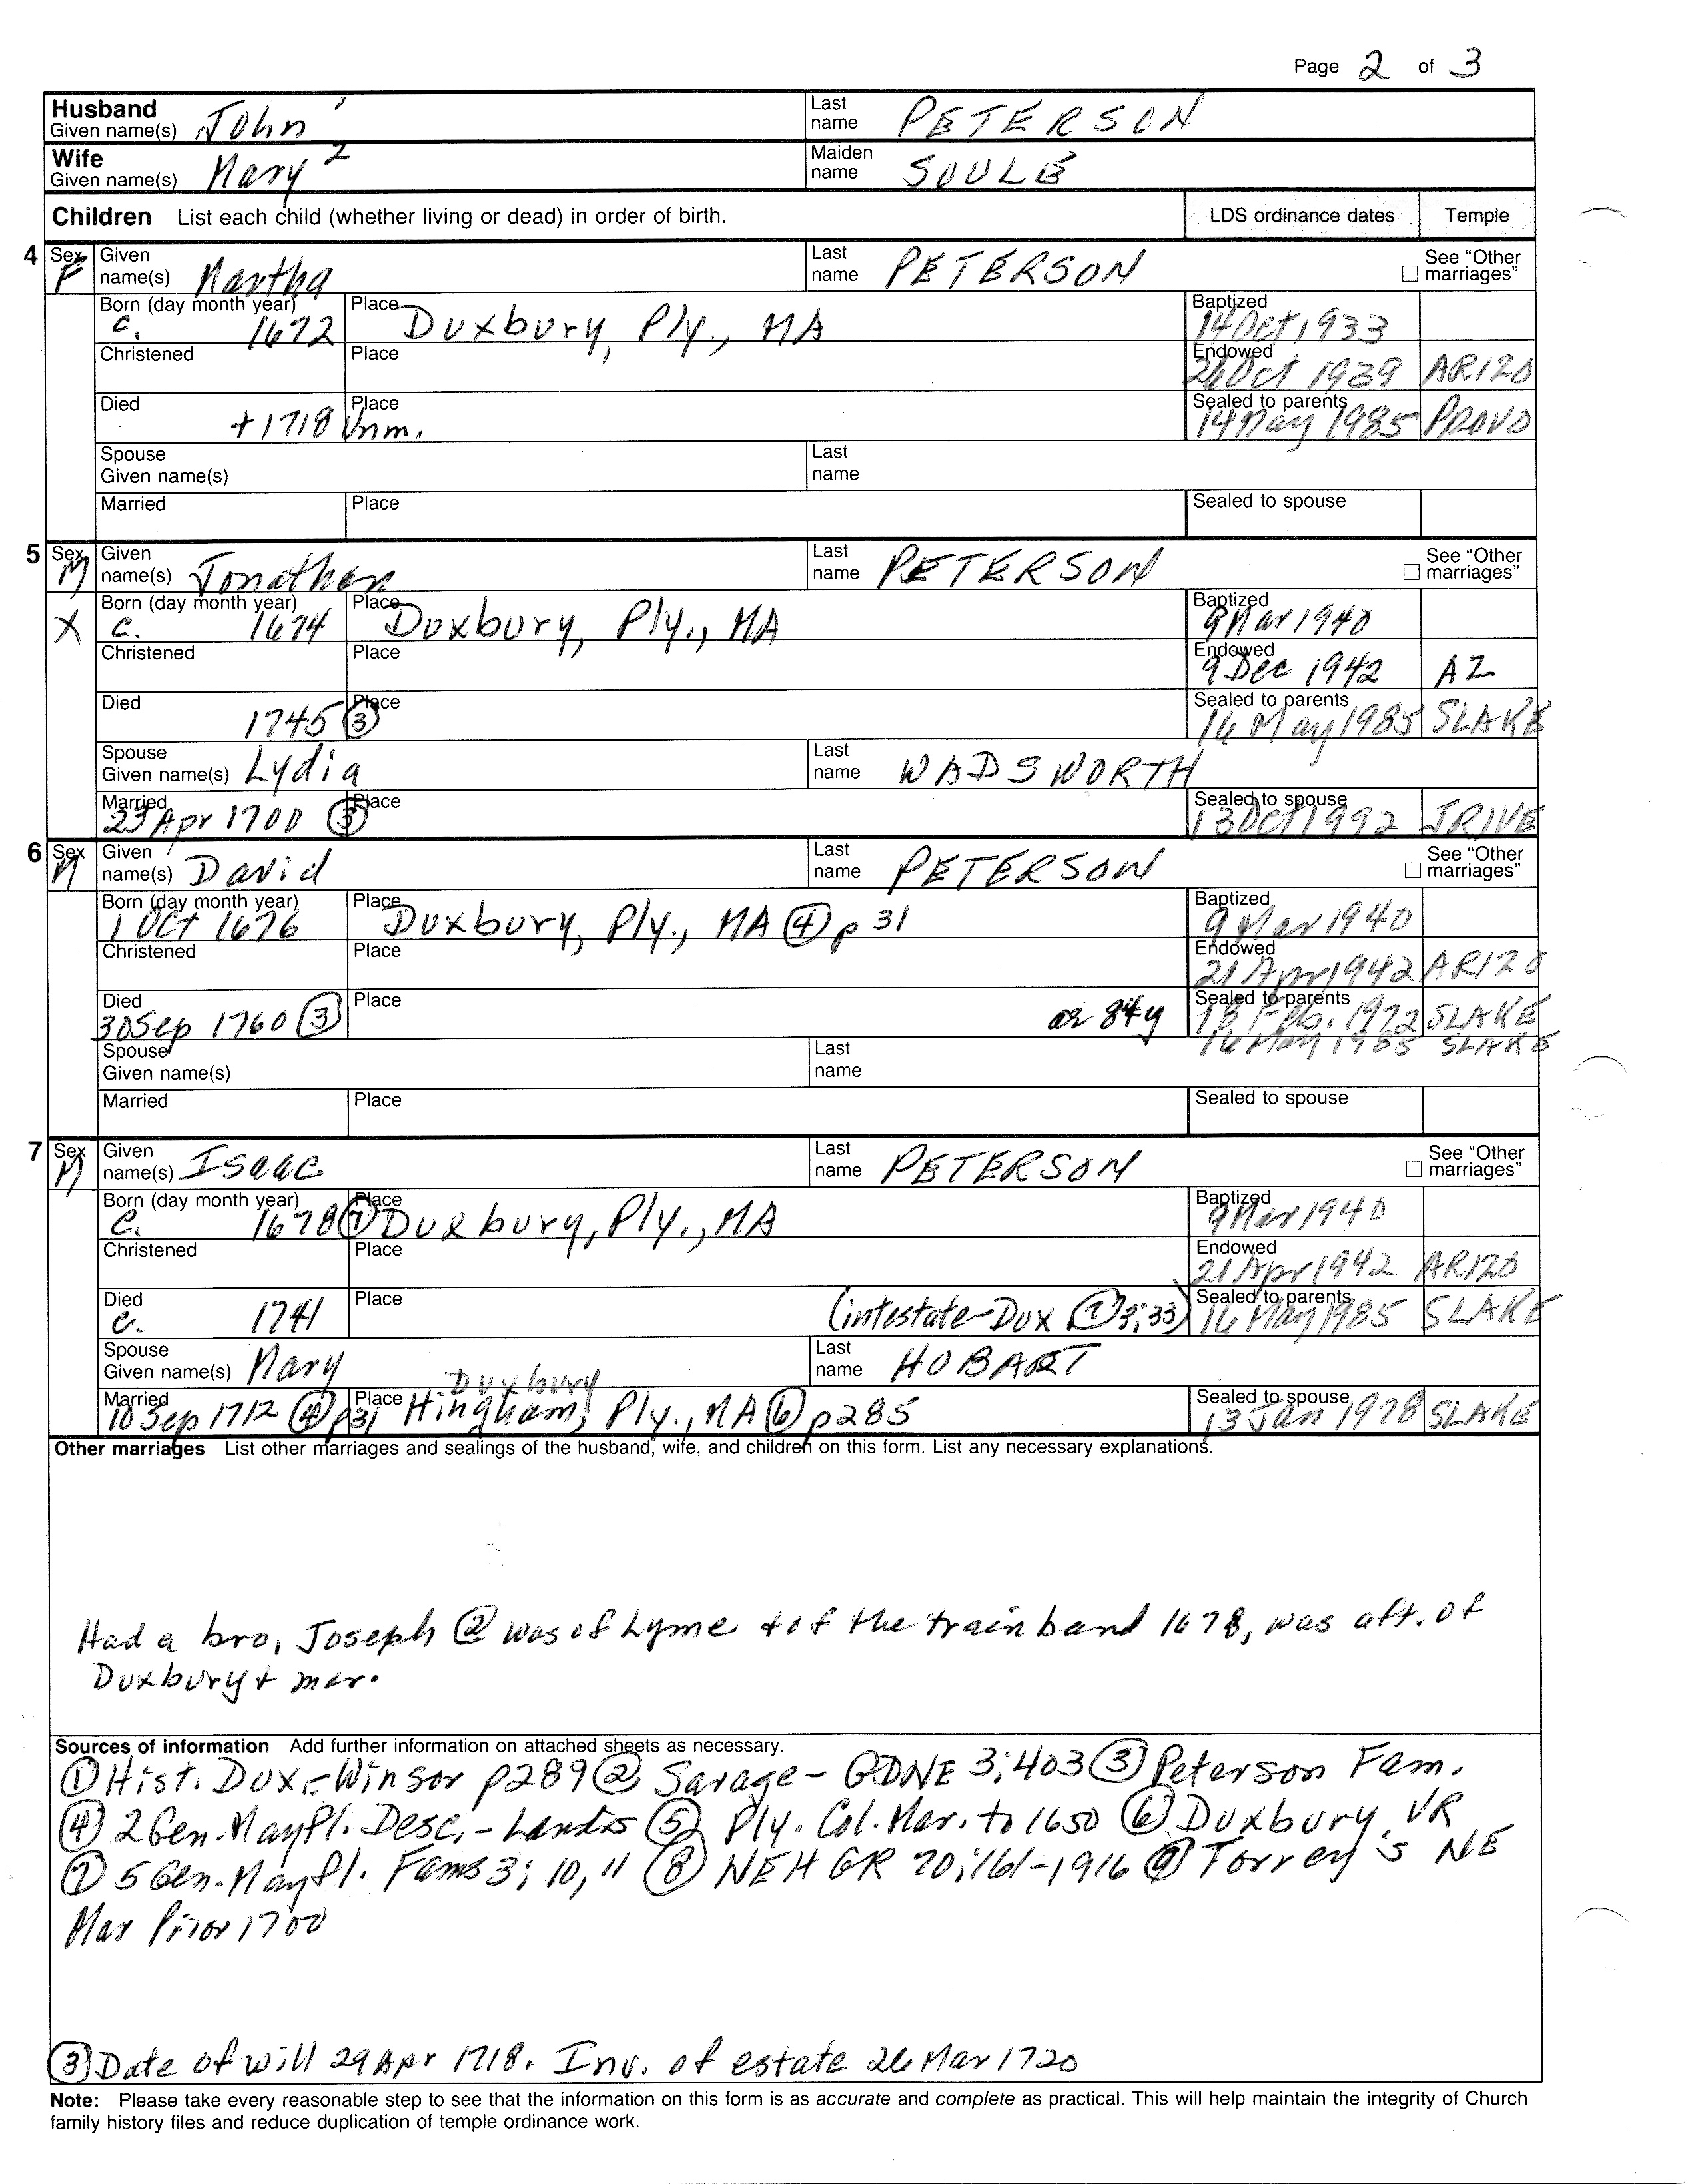 Page 2 of 3
Husband Given name(s) John 1 Last name PETERSON
Wife Given name(s) Mary 2 Maiden name SOULE
Children List each child (whether living or dead) in order of birth. LDS ordinance dates Temple
4 Sex F Given name(s) Martha Last name PETERSON See "Other marriages"
Born (day month year) c. 1672 Place Duxbury, Ply., MA Baptized 14 Oct 1933
Christened Place Endowed 26 Oct 1939 ARIZO
Died +1718 Place Unm. Sealed to parents 14 May 1985 PROVO
Spouse Given name(s) Last name
Married Place Sealed to spouse
5 Sex M Given name(s) Jonathan Last name PETERSON See "Other marriages"
X Born (day month year) c. 1674 Place Duxbury, Ply., MA Baptized 9 Mar 1940
Christened Place Endowed 9 Dec 1942 AZ
Died 1745 (3) Place Sealed to parents 16 May 1985 SLAKE
Spouse Given name(s) Lydia Last name WADSWORTH
Married 23 Apr 1700 (3) Place Sealed to spouse 13 Oct 1992 JRIVE
6 Sex M Given name(s) David Last name PETERSON See "Other marriages"
Born (day month year) 1 Oct 1676 Place Duxbury, Ply., MA (4) p 31 Baptized 9 Mar 1940
Christened Place Endowed 21 Apr 1942 ARIZO
Died 30 Sep 1760 (3) Place ae 84y Sealed to parents 18 Feb. 1972 SLAKE
16 May 1985 SLAKE
Spouse Given name(s) Last name
Married Place Sealed to spouse
7 Sex M Given name(s) Isaac Last name PETERSON See "Other marriages"
Born (day month year) c. 1678 (7) Place Duxbury, Ply., MA Baptized 9 Mar 1940
Christened Place Endowed 21 Apr 1942 ARIZO
Died c. 1741 Place (intestate-Dux (7) 3:33) Sealed to parents 16 May 1985 SLAKE
Spouse Given name(s) Mary Last name HOBART
Duxbury
Married 10 Sep 1712 (4) p31 Place Hingham, Ply., MA (6) p285 Sealed to spouse 13 Jan 1978 SLAKE
Other marriages List other marriages and sealings of the husband, wife, and children on this form. List any necessary explanations.
Had a bro, Joseph (2) was of Lyme + of the train band 1678, was aft. of
Duxbury + mar.
Sources of information Add further information on attached sheets as necessary.
(1) Hist. Dux.-Winsor p289 (2) Savage- GDNE 3:403 (3) Peterson Fam.
(4) 2 Gen. Mayfl. Desc.-Landis (5) Ply. Col. Mar. to 1650 (6) Duxbury VR
(7) 5 Gen. Mayfl. Fams 3: 10, 11 (8) NEHGR 70:161-1916 (9) Torrey's NE
Mar Prior 1700
(3) Date of will 29 Apr 1718. Inv. of estate 26 Mar 1720
Note: Please take every reasonable step to see that the information on this form is as accurate and complete as practical. This will help maintain the integrity of Church
family history files and reduce duplication of temple ordinance work.